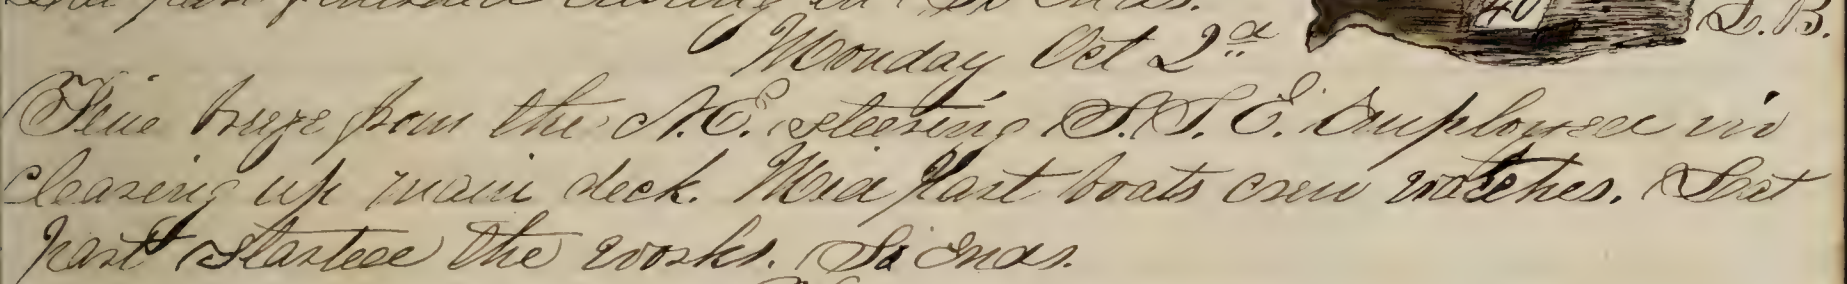 part finished cutting in. So ends. 40 L. B.
Monday Oct 2d
Fine breze from the N.E. steering S.S.E. Employed in
clearing up main deck. Mid part boats crew watches. Lat
part started the works. So ends.